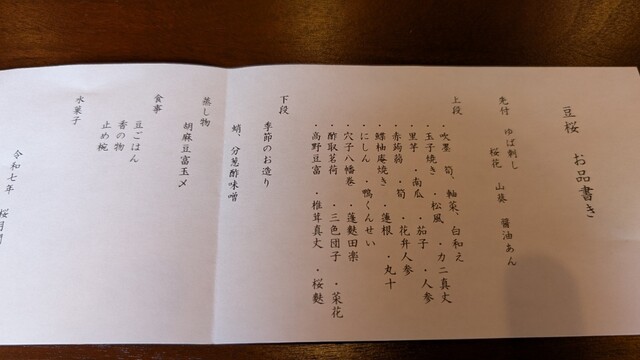 豆桜 お品書き
先付 ゆば刺し
桜花 山葵 醤油あん
上段
・吹寄 筍、軸菜、白和え
・玉子焼き ・松風 ・カニ真丈
・里芋 ・南瓜 ・茄子 ・人参
・赤蒟蒻 ・筍 ・花弁人参
・鰈柚庵焼き ・蓮根 ・丸十
・にしん ・鴨くんせい
・穴子八幡巻 ・蓬麩田楽
・酢取茗荷 ・三色団子 ・菜花
・高野豆富 ・椎茸真丈 ・桜麩
下段
季節のお造り
蛸、分葱酢味噌
蒸し物
胡麻豆富玉〆
食事
豆ごはん
香の物
止め椀
水菓子
令和七年 桜月